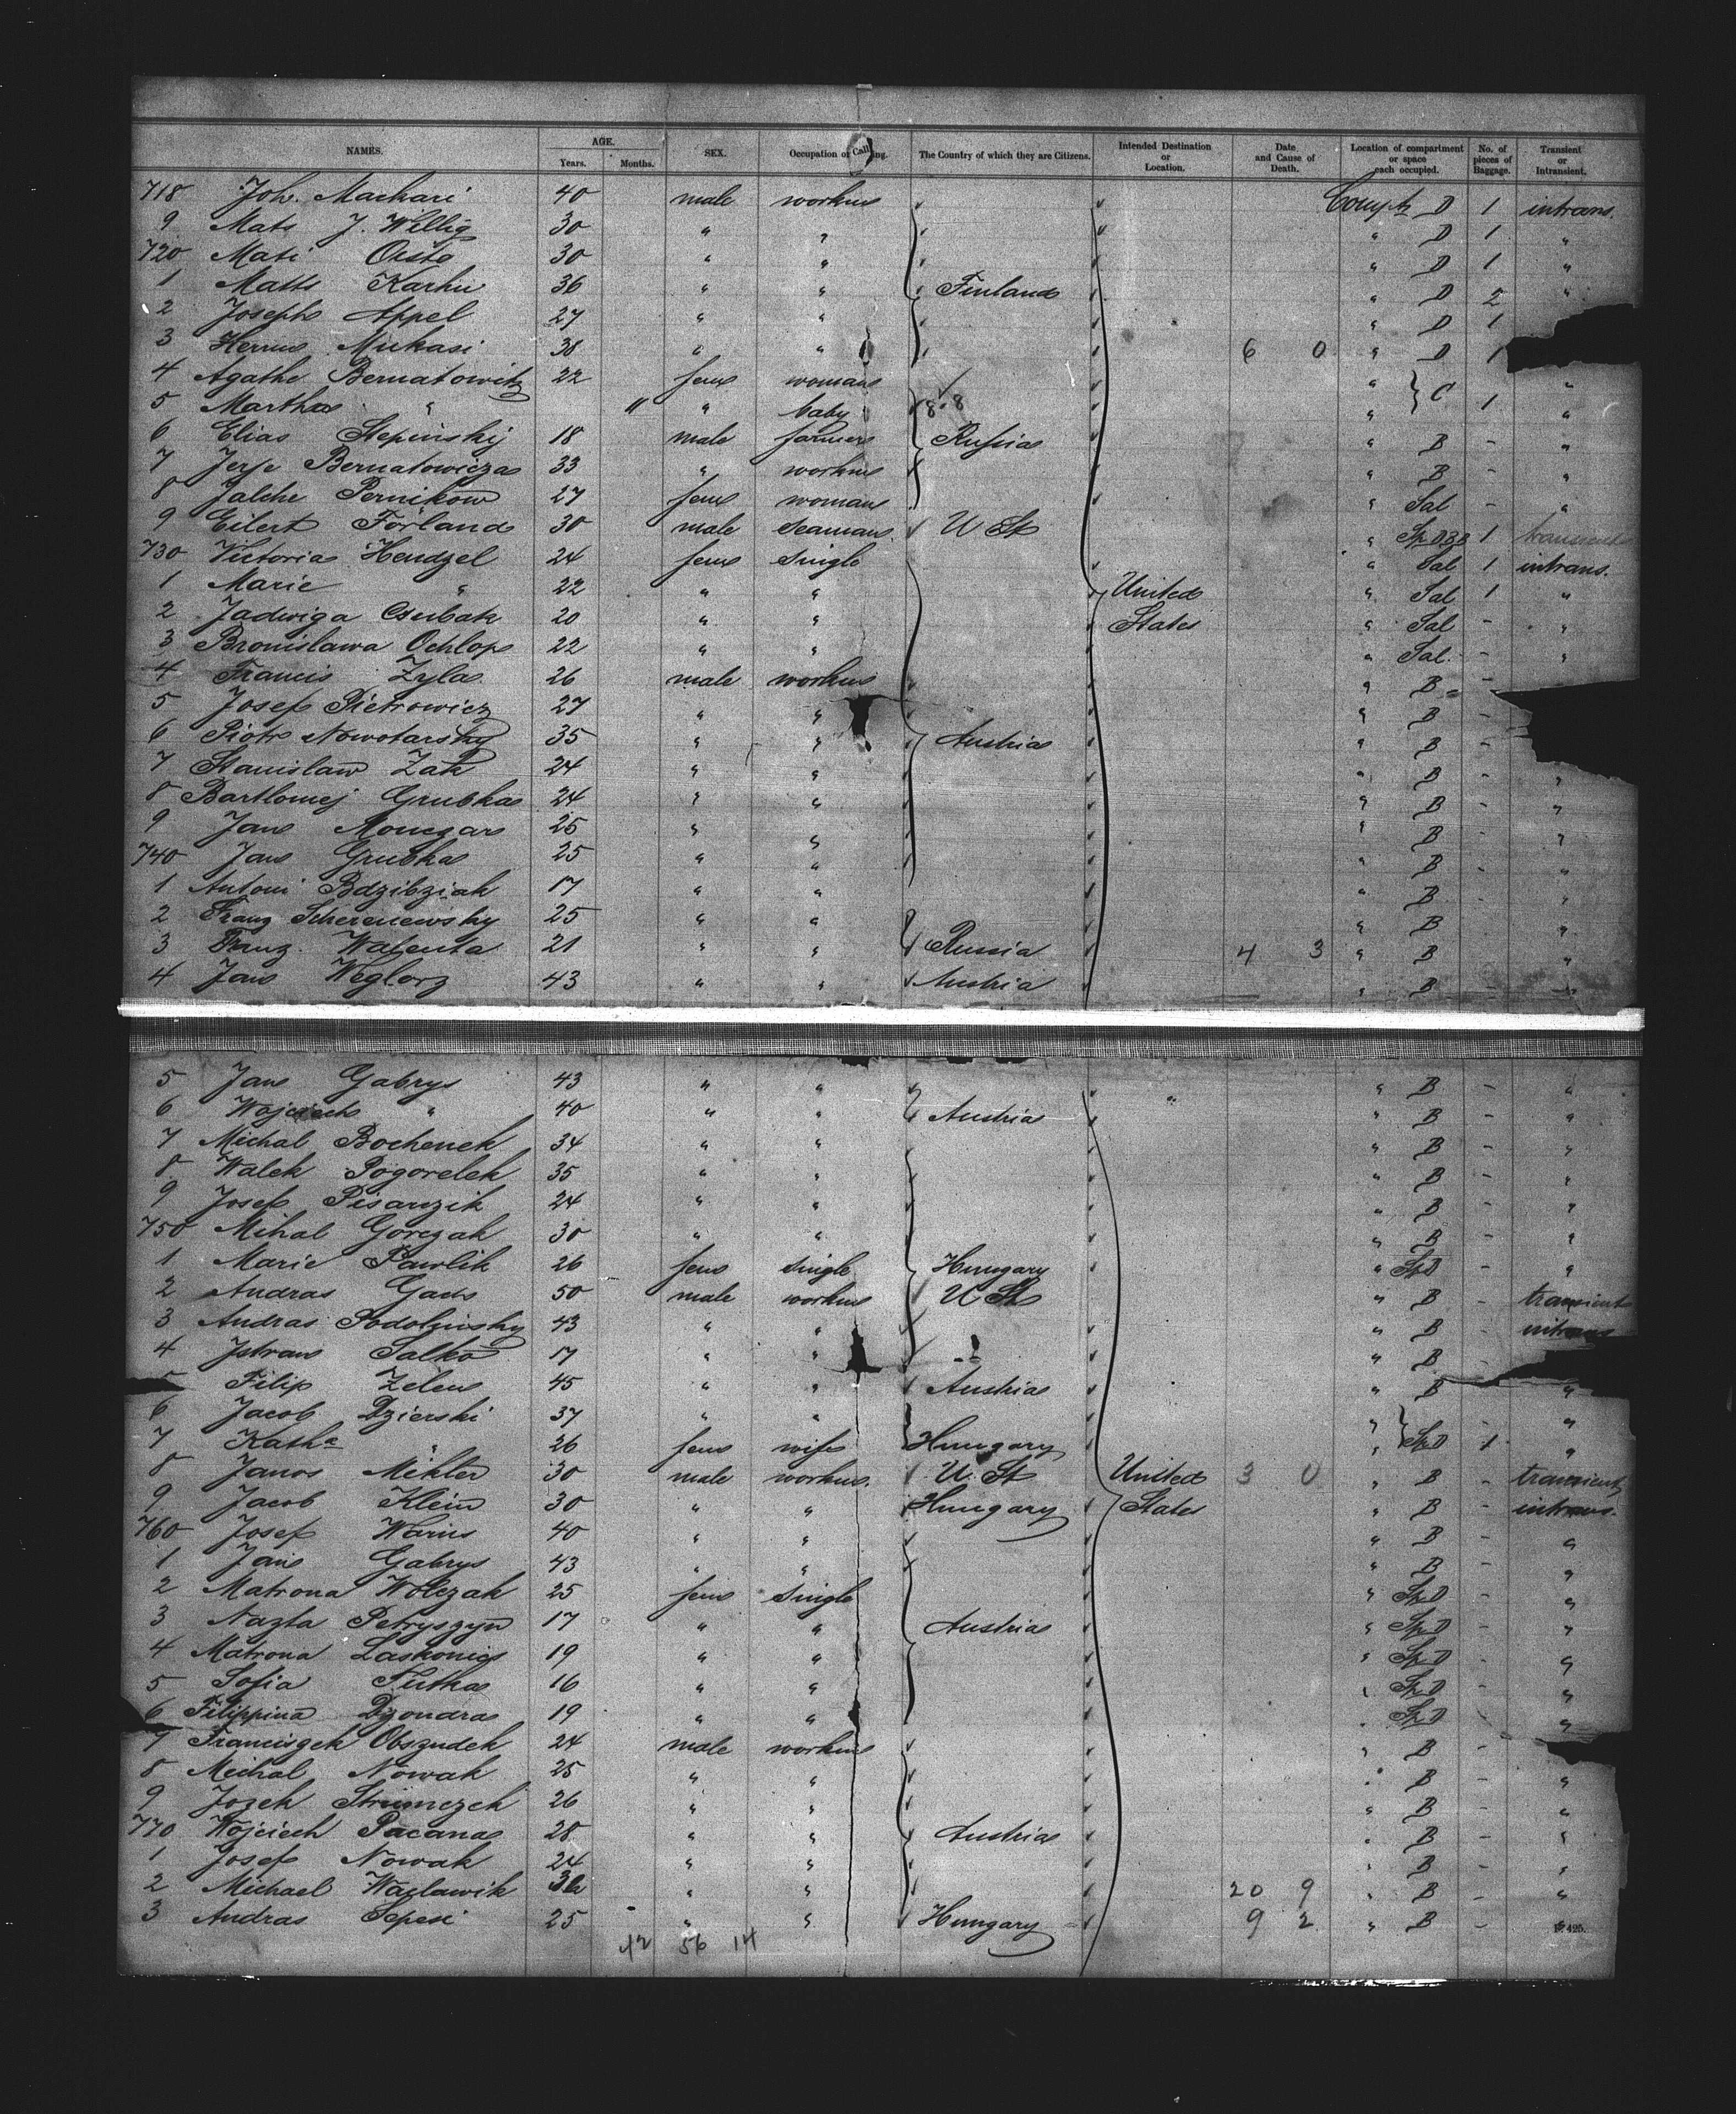 NAMES. AGE. Years. Months. SEX. Occupation or Calling. The Country of which they are Citizens. Intended Destination or Location. Date and Cause of Death. Location of compartment or space each occupied. No. of pieces of Baggage. Transient or Intransient.
718 Joh. Machari 40 male workm Compt D 1 intrans.
9 Mats J. Willig 30 " " " D 1 "
720 Mati 30 " " " D 1 "
1 Matts Karhu 36 " " Finland " D 2 "
2 Joseph Appel 27 " " " D 1
3 Mukasi 38 " " 6 0 " D 1
4 Agathe Bernatowitz 22 fem woman " C "
5 Martha " 11 " baby 8.8 " 1 "
6 Elias Stepinskij 18 male farmer Russia " B - "
7 Jerse Bernatowicza 33 " workm " B - "
8 Jalche Pernikow 27 fem woman " Sal - "
9 Eilert Förland 30 male seaman U St " 1 transient
730 Victoria Hendzel 24 fem single " Sal 1 intrans.
1 Marie " 22 " " United " Sal 1 "
2 Jadwiga Csubak 20 " " States " Sal - "
3 Bronislawa Ochlop 22 " " " Sal. - "
4 Francis Zyla 26 male workm " B -
5 Josef Pietrowicz 27 " " " B -
6 Piotr Nowotarsky 35 " " Austria " B -
7 Stanislaw Zak 24 " " " B - "
8 Bartlomej Grubka 24 " " " B - "
9 Jan 25 " " " B - "
740 Jan Grubka 25 " " " B - "
1 Antoni Bdzibziak 17 " " " B - "
2 Franz Scherenewsky 25 " " " B "
3 Franz. Walenta 21 " " Russia 4 3 " B - "
4 Jan Weglorz 43 " " Austria " B - "
5 Jan Gabrys 43 " " " " B - "
6 Wojciech " 40 " " Austria " B - "
7 Michal Bochenek 34 " " " B - "
8 Walek Pogorelek 35 " " " B - "
9 Josef Pisarczik 24 " " " B - "
750 Mihal Gorczak 30 " " " B - "
1 Marie Pawlik 26 fem single Hungary " SpD - "
2 Andras Gads 50 male workm U St " B - transient
3 Andras Sodolzinsky 43 " " " B - intrans
4 Istvan Salko 17 " " " B -
Filip Zelem 45 " " Austria " B "
6 Jacob Dzierski 37 " " " "
7 Katha " 26 fem wife Hungary " SpD 1 "
8 Janos Mekler 30 male workm. U. St United 3 0 " B - transient
9 Jacob Klein 30 " " Hungary States " B - intrans.
760 Josef Warius 40 " " " B - "
1 Jan Gabrys 43 " " " B - "
2 Matrona Wolczak 25 fem single " SpD - "
3 Nazta Petryszyn 17 " " Austria " SpD - "
4 Matrona 19 " " " SpD - "
5 Sofia Futka 16 " " " SpD - "
6 Filippina Dzondra 19 " " SpD "
7 Franciszek Obszudek 24 male workm " B -
8 Michal Nowak 25 " " " B - "
9 Jozek Strumczek 26 " " " B - "
770 Wojciech Pacana 28 " " Austria " B - "
1 Josef Nowak 24 " " " B - "
2 Michael Waclawik " " 20 9 " B - "
3 Andras Sepesi 25 " " Hungary 9 2 " B - "
42 56 14